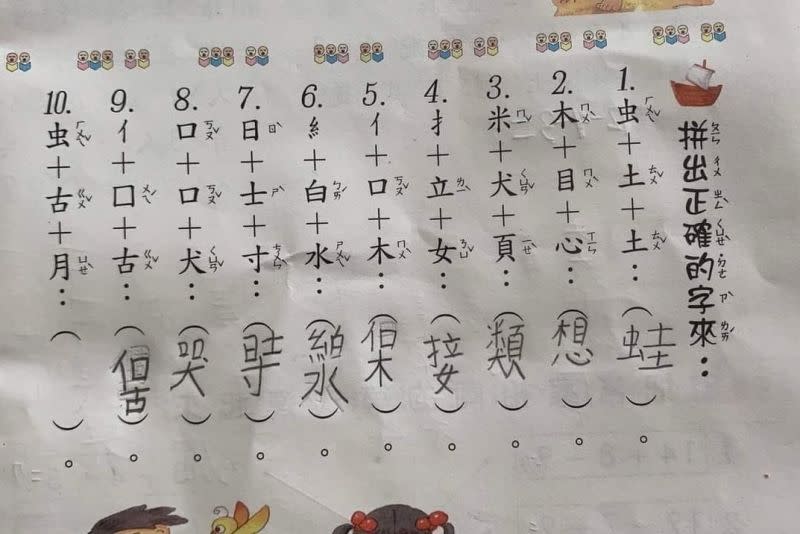 拼出正確的字來：
1. 虫＋土＋土：（蛙）。
2. 木＋目＋心：（想）。
3. 米＋犬＋頁：（類）。
4. 扌＋立＋女：（接）。
5. 亻＋口＋木：（保）。
6. 糹＋白＋水：（線）。
7. 日＋士＋寸：（時）。
8. 口＋口＋犬：（哭）。
9. 亻＋囗＋古：（個）。
10. 虫＋古＋月：（）。